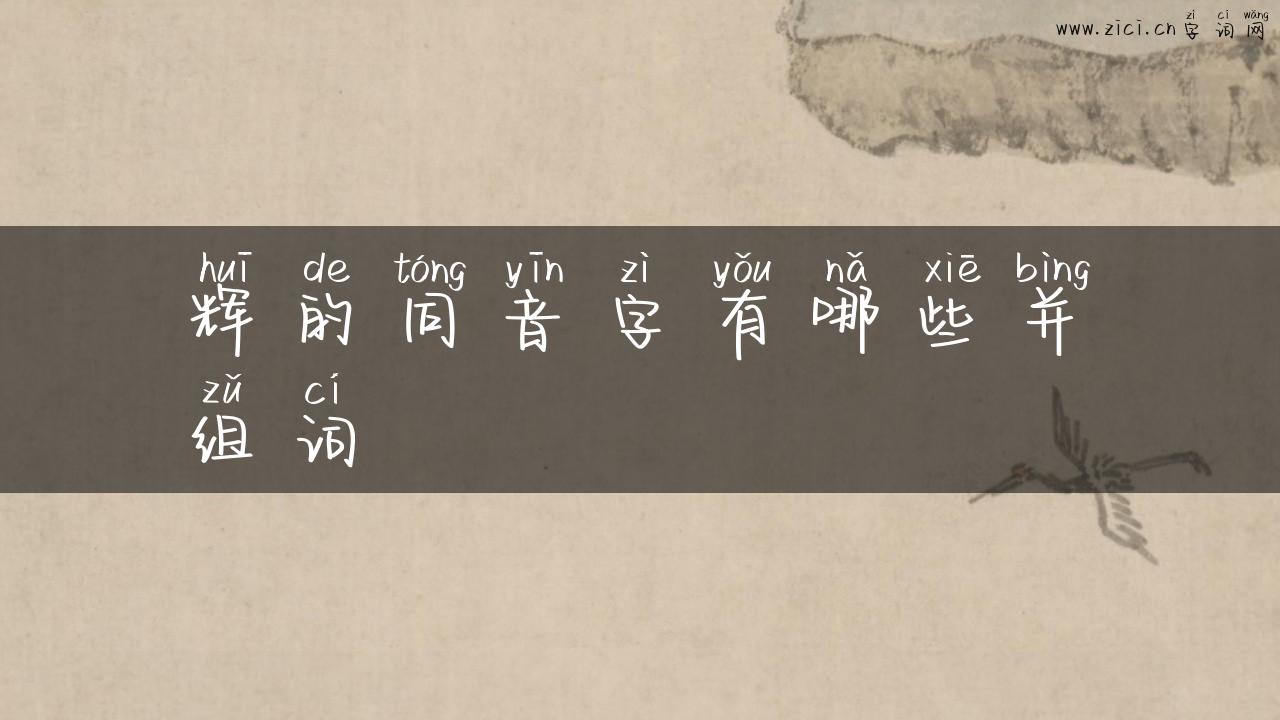 zì cí wǎng
www.zici.cn字词网
huī de tóng yīn zì yǒu nǎ xiē bìng
辉的同音字有哪些并
zǔ cí
组词